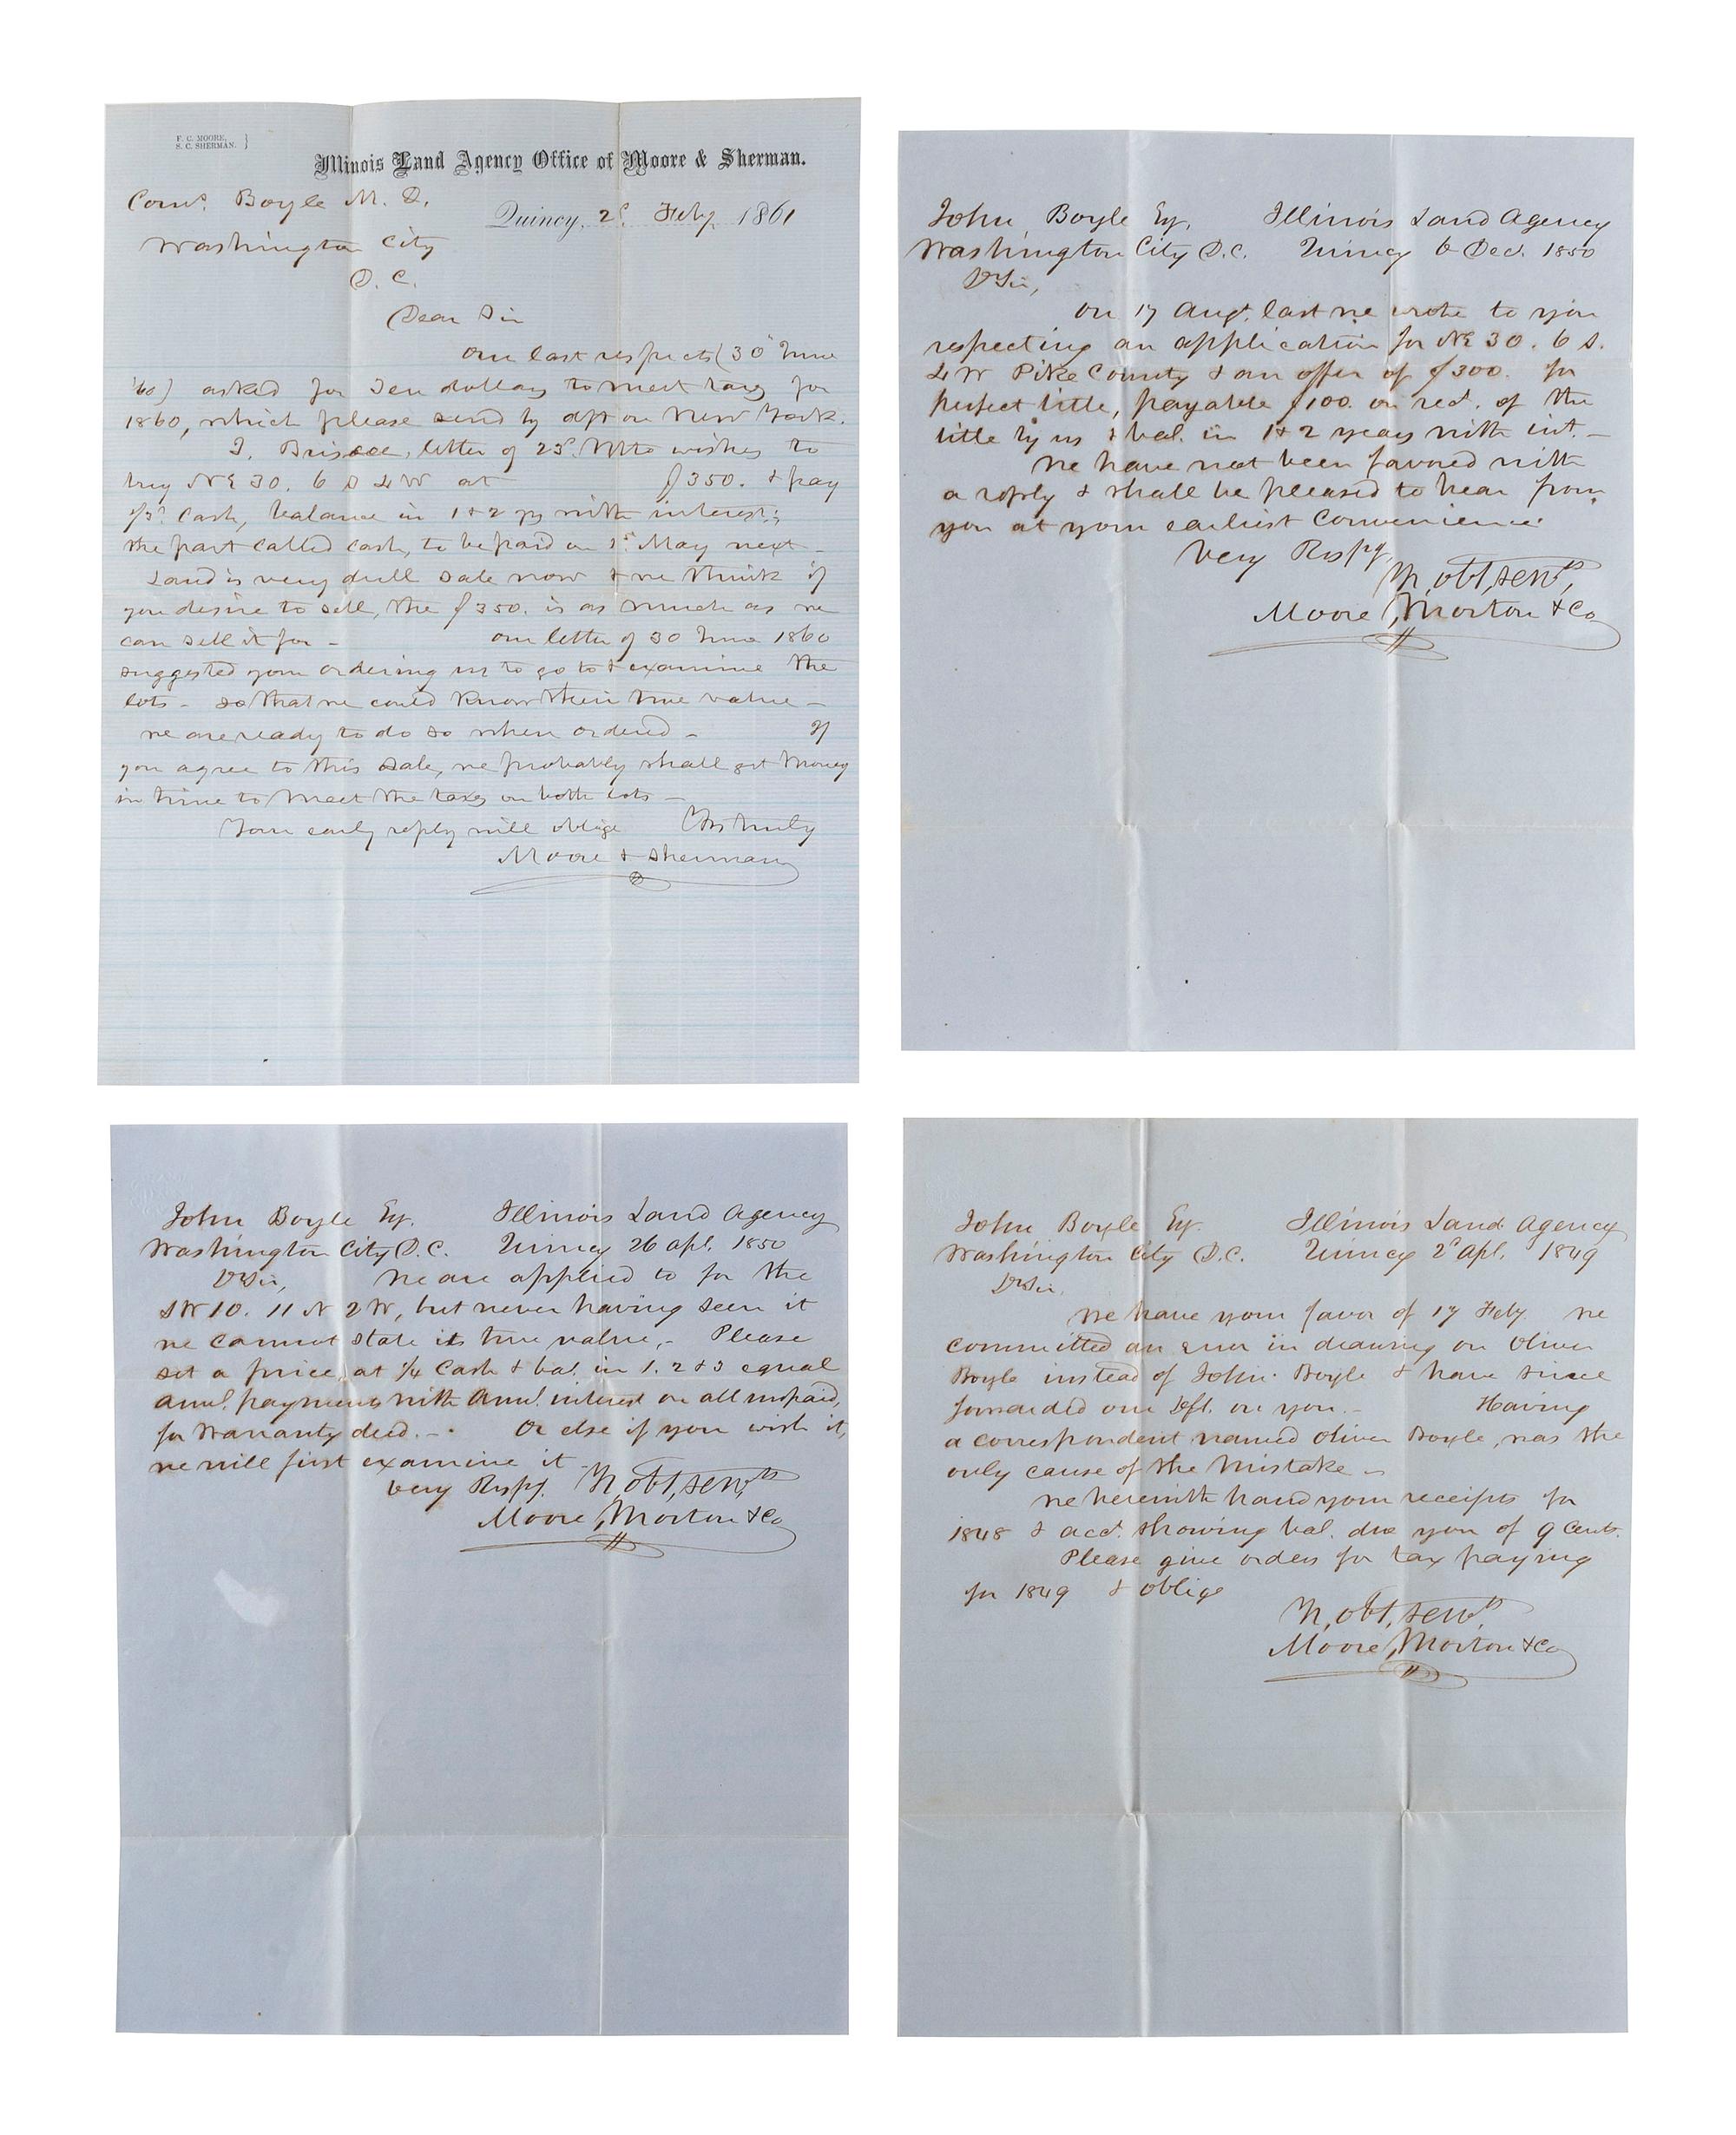 F. C. MOORE,
S. C. SHERMAN. }
Illinois Land Agency Office of Moore & Sherman.
Corns. Boyle M. D.
Quincy, 2d. Feby 1861
Washington City
D. C.
Dear Sir
Our last respects (30 June
'60) asked for Ten dollars to meet taxes for
1860, which please send by dft on New York.
J. Briscoe, letter of 23d. Ulto wishes to
buy NE 30. 6 S 4 W at $350. & pay
1/3d. Cash, balance in 1 & 2 ys with interest;
the part called cash, to be paid on 1st May next -
Land is very dull sale now & we think if
you desire to sell, the $350. is as much as we
can sell it for - our letter of 30 June 1860
suggested your ordering us to go to & examine the
lots - so that we could know their true value -
we are ready to do so when ordered - If
you agree to this sale, we probably shall get money
in time to meet the taxes on both lots -
Your early reply will oblige Yrs truly
Moore & Sherman
John Boyle Eq. Illinois Land Agency
Washington City D.C. Quincy 6 Dec. 1850
Dr Sir,
On 17 Augt. last we wrote to you
respecting an application for NE 30. 6 S.
4 W Pike County & an offer of $300. for
perfect title, payable $100. on rect. of the
title by us & bal. in 1 & 2 years with int. -
We have not been favored with
a reply & shall be pleased to hear from
you at your earliest convenience.
Very Respy
Yr, obt, servts,
Moore, Morton & Co
John Boyle Eq. Illinois Land Agency
Washington City D.C. Quincy 26 Apl. 1850
Dr Sir, We are applied to for the
SW 10. 11 N 2 W, but never having seen it
we cannot state its true value, - Please
set a price, at 1/4 Cash & bal. in 1. 2 & 3 equal
Annl. payments with Annl. interest on all unpaid,
for Warranty deed. - . Or else if you wish it,
we will first examine it -
Very Respy. Yr, obt, servts
Moore, Morton & Co
John Boyle Eq. Illinois Land Agency
Washington City D.C. Quincy 2d Apl. 1849
Dr Sir.
We have your favor of 17 Feby. We
committed an error in drawing on Oliver
Boyle instead of John. Boyle & have since
forwarded our Dft. on you. - Having
a correspondent named Oliver Boyle, was the
only cause of the mistake -
We herewith hand your receipts for
1848 & acct. showing bal. due you of 9 Cents.
Please give orders for tax paying
for 1849 & oblige
Yr, obt, servts
Moore, Morton & Co